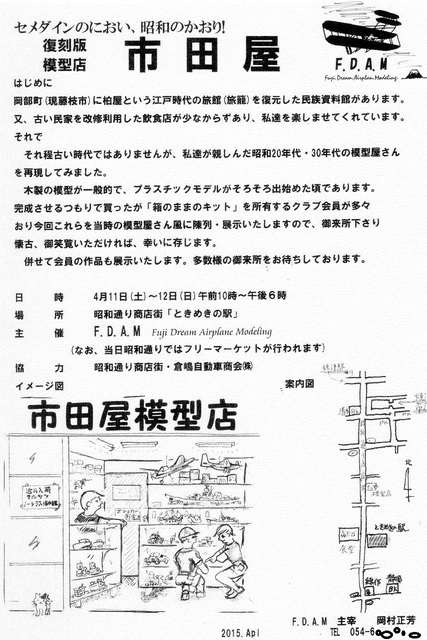 セメダインのにおい、昭和のかおり!
復刻版
模型店
市田屋
F.D.A.M
Fuji Dream Airplan Modeling
はじめに
岡部町(現藤枝市)に柏屋という江戸時代の旅館(旅籠)を復元した民族資料館があります。
又、古い民家を改修利用した飲食店が少なからずあり、私達を楽しませてくれています。
それで
それ程古い時代ではありませんが、私達が親しんだ昭和20年代・30年代の模型屋さん
を再現してみました。
木製の模型が一般的で、プラスチックモデルがそろそろ出始めた頃であります。
完成させるつもりで買ったが「箱のままのキット」を所有するクラブ会員が多々
おり今回これらを当時の模型屋さん風に陳列・展示いたしますので、御来所下さり
懐古、御笑覧いただければ、幸いに存じます。
併せて会員の作品も展示いたします。多数様の御来所をお待ちしております。
日 時 4月11日(土)～12日(日)午前10時～午後6時
場 所 昭和通り商店街「ときめきの駅」
主 催 F.D.A.M Fuji Dream Airplane Modeling
(なお、当日昭和通りではフリーマーケットが行われます)
協 力 昭和通り商店街・倉嶋自動車商会㈱
イメージ図
案内図
市田屋模型店
ときめきの駅
F.D.A.M 主宰 岡村正芳
2015.Apl
TEL 054-6